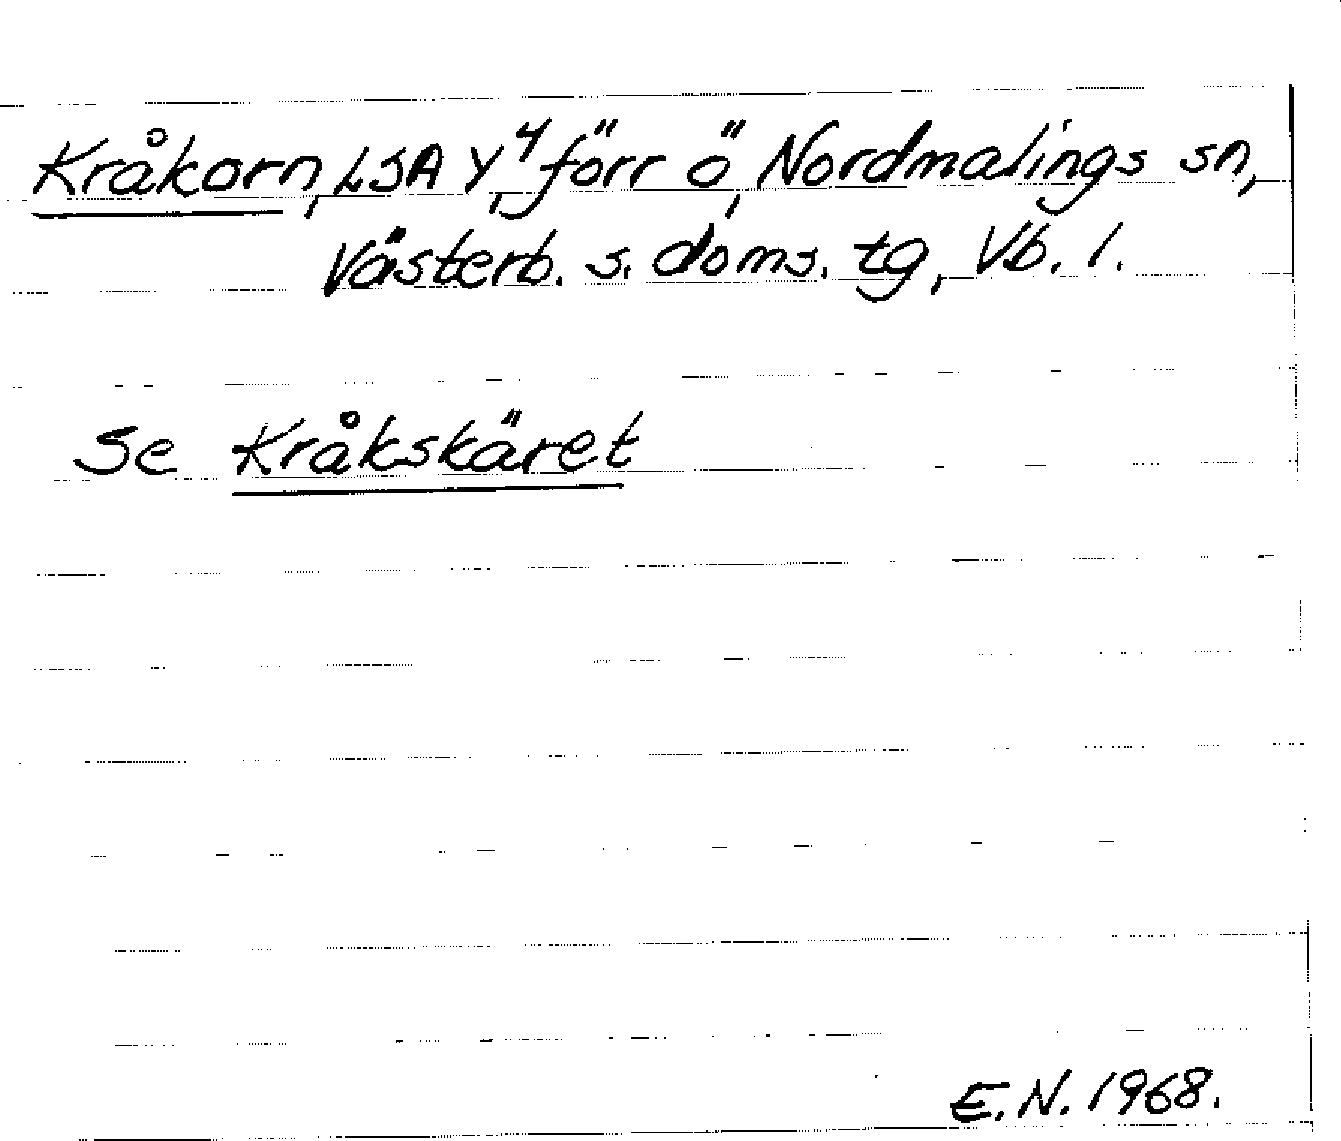 Kråkorn, LSA Y⁴, förr ö, Nordmalings sn,
Västerb. s. doms. tg, Vb. l.
Se Kråkskäret
E.N. 1968.